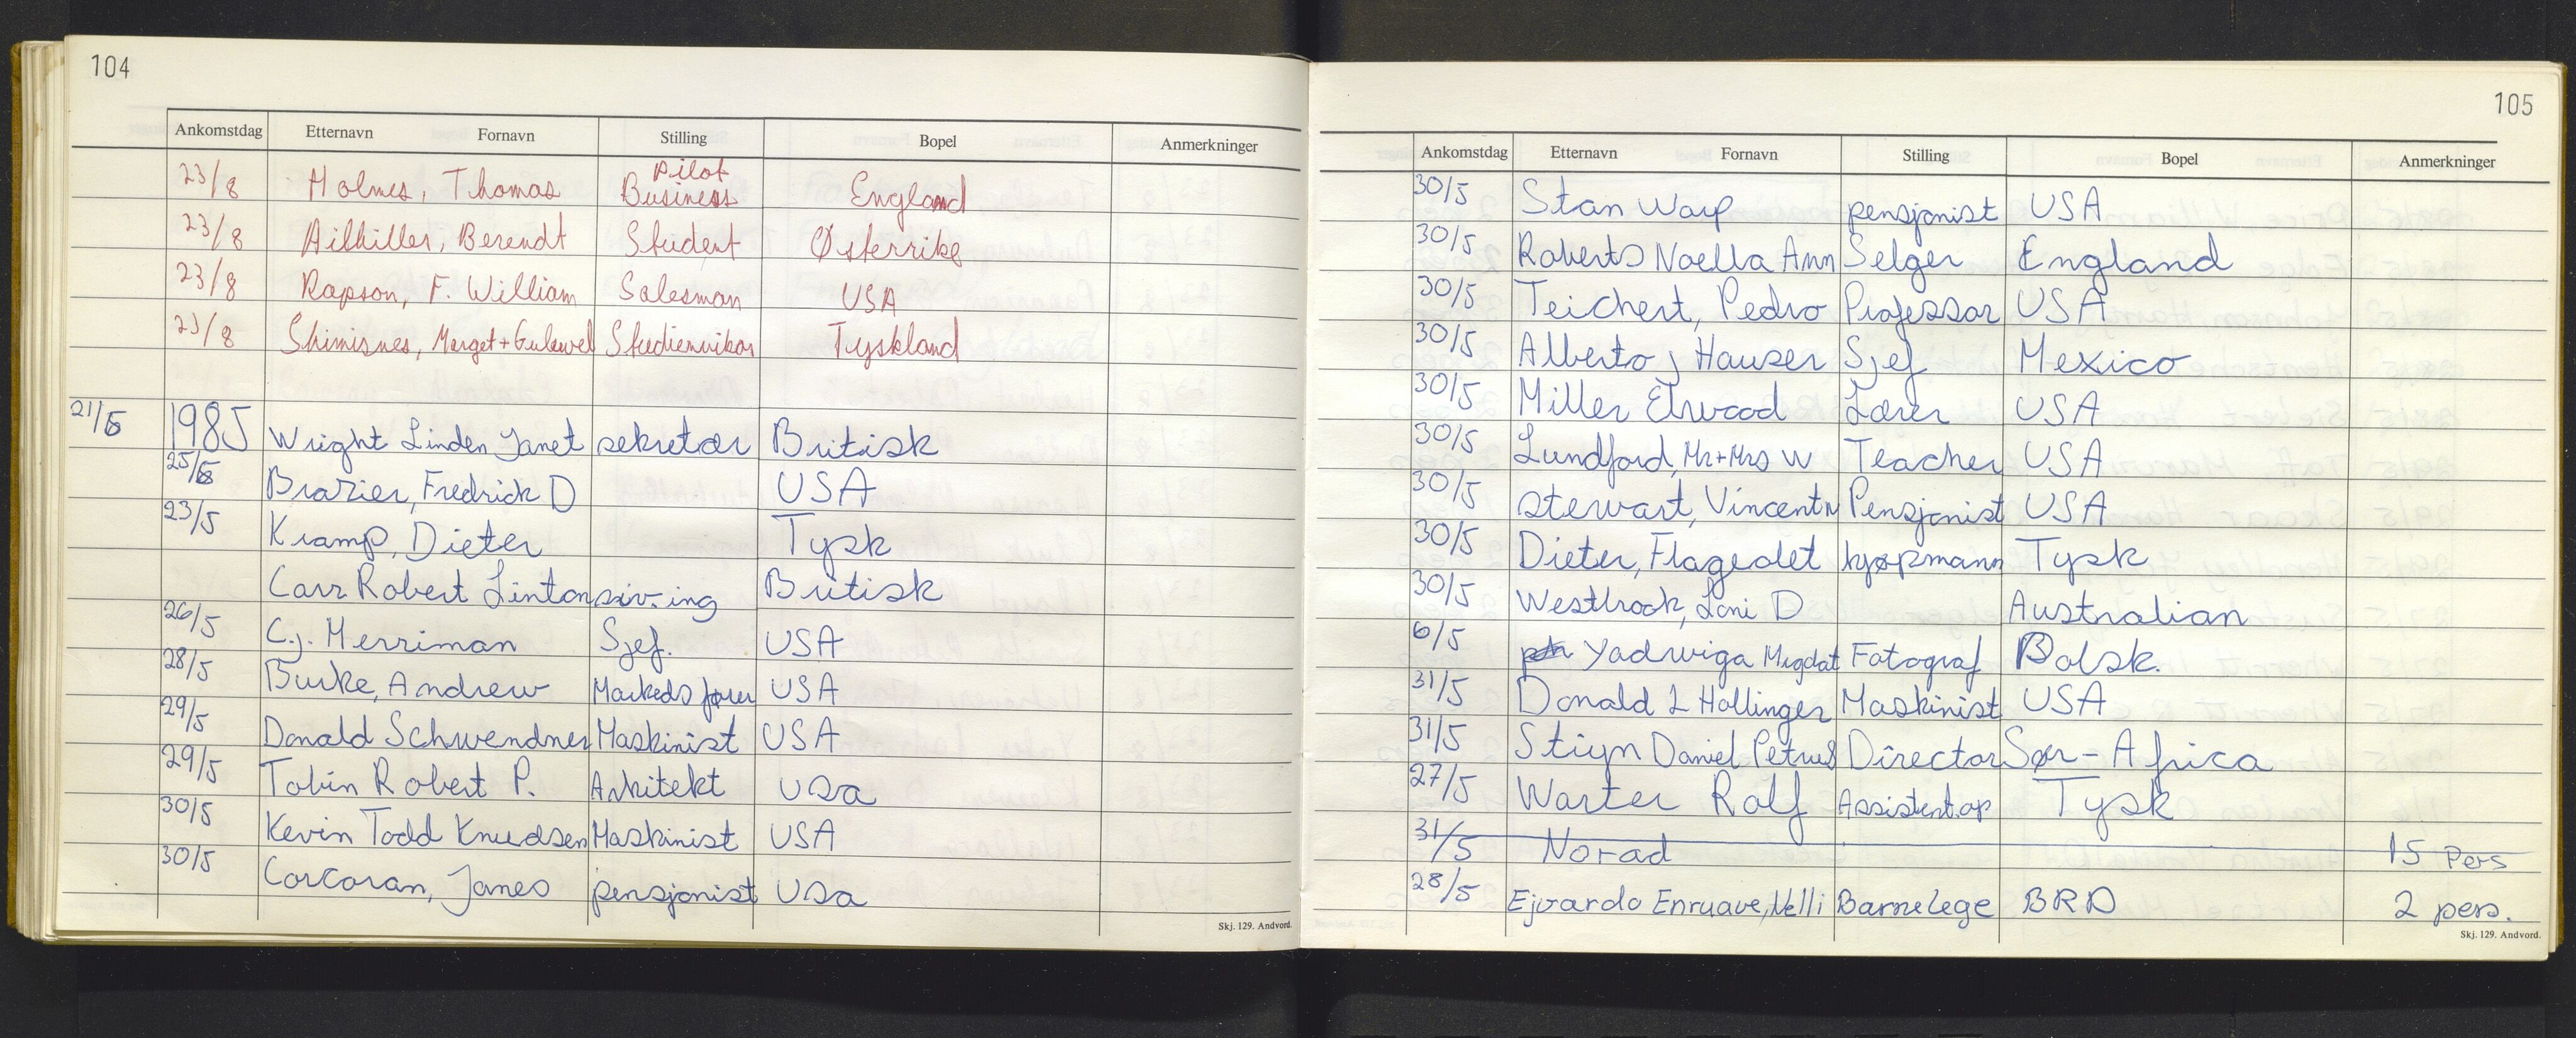 104
Ankomstdag Etternavn Fornavn Stilling Bopel Anmerkninger
23/8 Holmes, Thomas Pilot Business England
23/8 Berendt Student Østerrike
23/8 Rapson, F. William Salesman USA
23/8 Tyskland
21/5 1985 Wright Linden Janet sekretær Britisk
25/5 Brazier, Fredrick D USA
23/5 Kramp, Dieter Tysk
Carr Robert Linton siv. ing Britisk
26/5 C.J. Merriman Sjef. USA
28/5 Burke, Andrew Markedsfører USA
29/5 Donald Schwendner Maskinist USA
29/5 Tobin Robert P. Arkitekt USa
30/5 Kevin Todd Knudsen Maskinist USA
30/5 Corcoran, James pensjonist USa
Skj. 129. Andvord.
105
Ankomstdag Etternavn Fornavn Stilling Bopel Anmerkninger
30/5 Stan pensjonist USA
30/5 Roberts Noella Ann Selger England
30/5 Teichert, Pedro Professor USA
30/5 Alberto J Hauser Sjef Mexico
30/5 Miller Elwood Lærer USA
30/5 Lundford, Mr+Mrs W Teacher USA
30/5 Stewart, Vincent Pensjonist USA
30/5 Dieter, Flageolet kjøpmann Tysk
30/5 Westbrook, Loni D Australian
6/5 Yadwiga Migdat Fotograf Polsk.
31/5 Donald L Hollinger Maskinist USA
31/5 Stiyn Daniel Petrus Director Sør-Africa
27/5 Warter Rolf Assistent.ap Tysk
31/5 Norad 15 Pers
28/5 Ejvardo Enruave, Nelli Barnelege BRD 2 pers.
Skj. 129. Andvord.